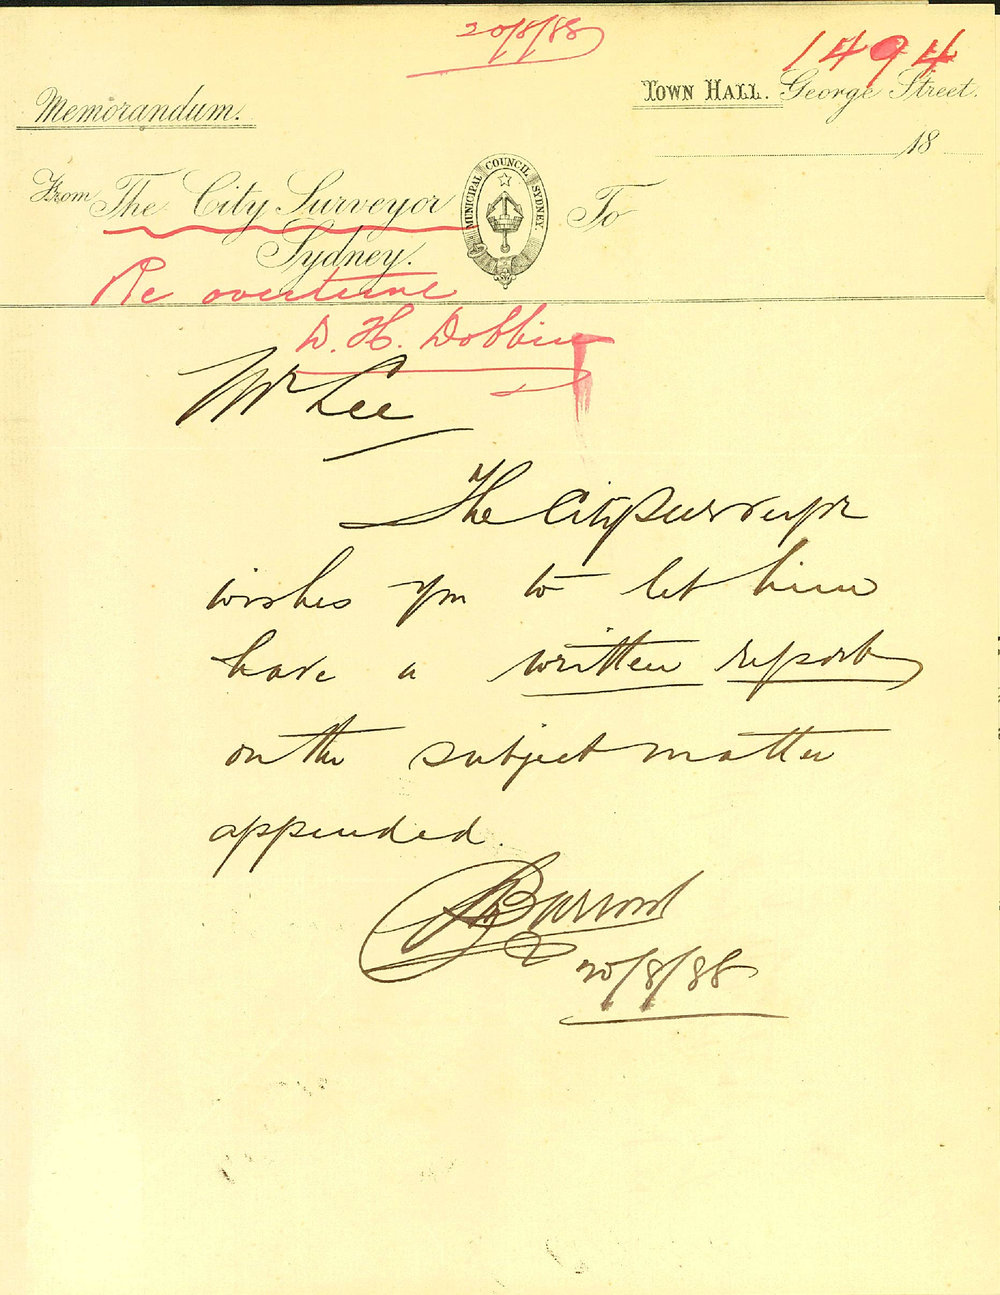 20/8/88
1494
Memorandum.
TOWN HALL. George Street.
18
From The City Surveyor
Sydney.
MUNICIPAL COUNCIL SYDNEY.
To
Re overtime
D. H. Dobbin
Mr Lee
The City Surveyor
wishes you to let him
have a written report
on the subject matter
appended.
20/8/88